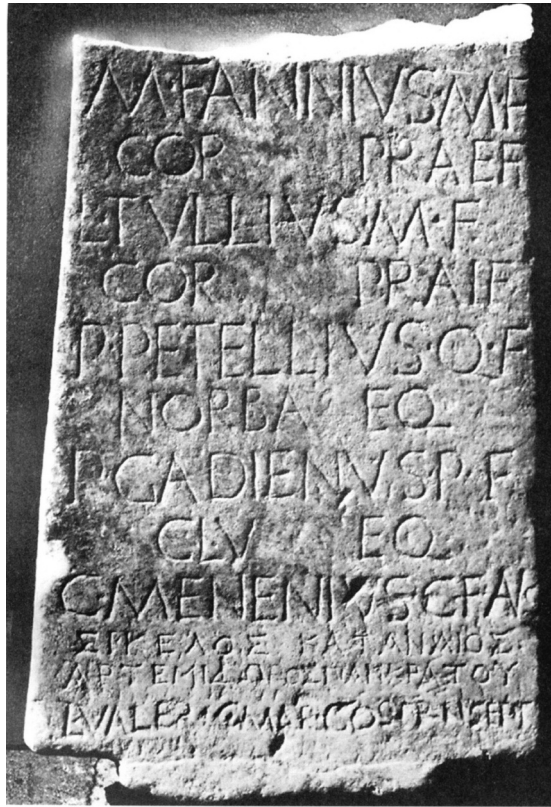 M·FANNIVS·M·F
COR PRAEF
L·TVLLIVS M·F
COR PRAIF
P·PETELLIVS·Q·F
NORBA EQ
P·GADIENVS P·F
CLV EQ
C·MENENIVS·C·F
ΣΙΚΕΛΟΣ ΚΑΤΑΝΑΙΟΣ
ΑΡΤΕΜΙΔΩΡΟΣ
L·VALERI